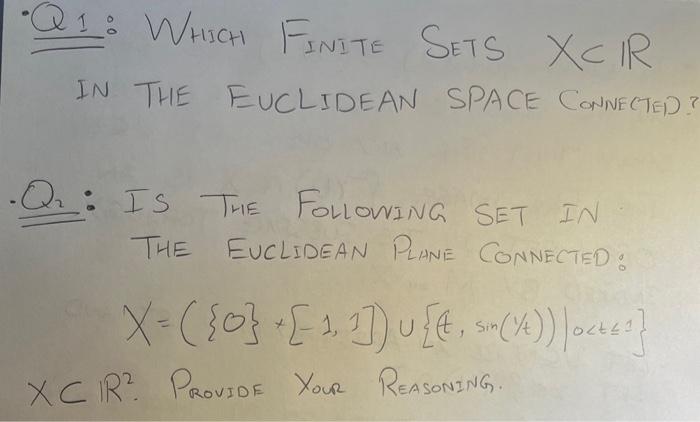 ·Q1: WHICH FINITE SETS X⊂ℝ
IN THE EUCLIDEAN SPACE CONNECTED?
·Q2: IS THE FOLLOWING SET IN
THE EUCLIDEAN PLANE CONNECTED:
X=({0}×[-1, 1])∪{(t, sin(1/t))|0<t≤1}
X⊂ℝ². PROVIDE YOUR REASONING.